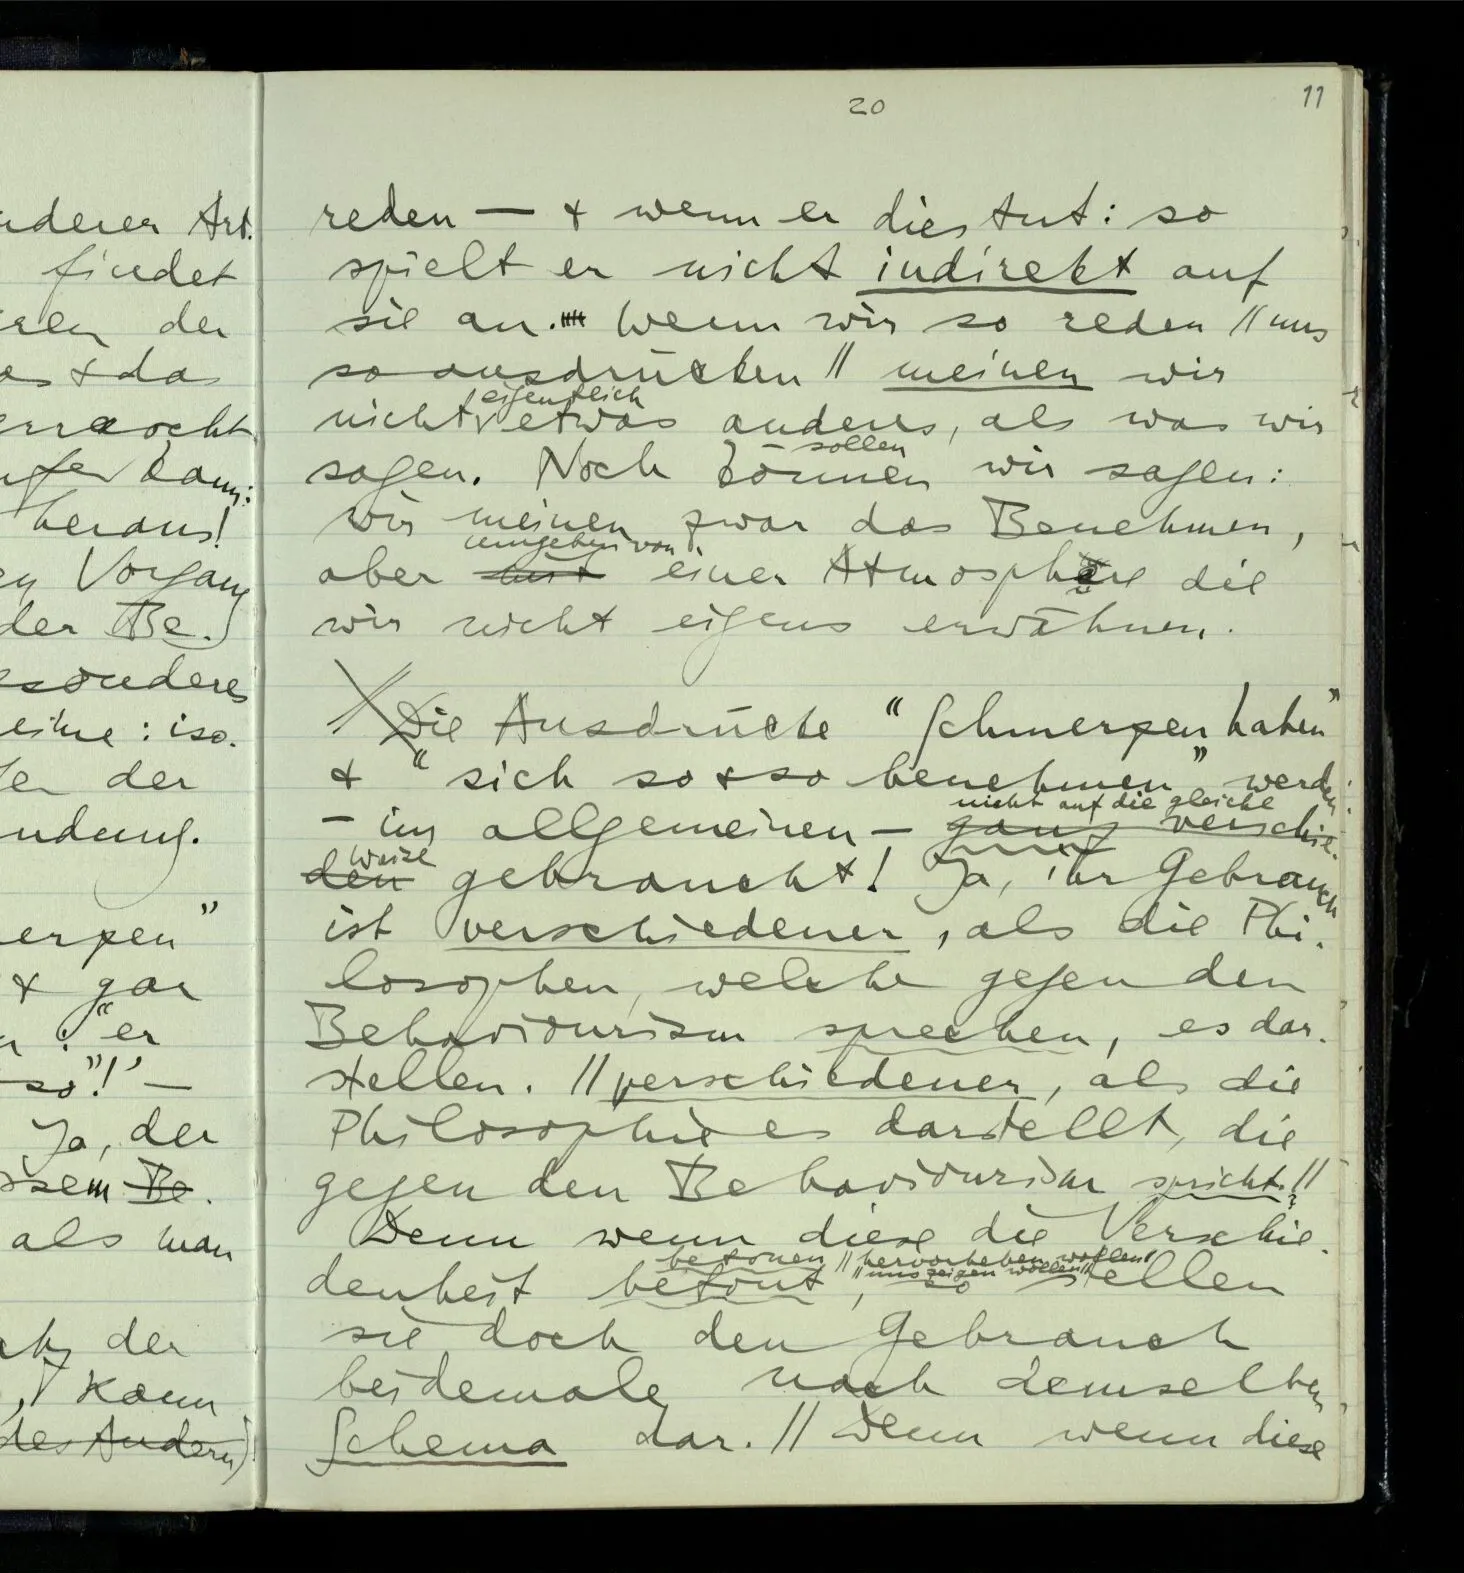 20
11
nderer Art.
findet
der
as & da
kann:
heraus!
Vorgang
der Be-
esonderes
eine : iso-
der
ndung.
erzen"
& gar
: "er
so"!' —
Ja, der
ssem Be-
als man
der
, kann
des Andern)
reden — & wenn er dies tut: so
spielt er nicht indirekt auf
sie an. Wenn wir so reden // uns
so ausdrücken // meinen wir
eigentlich
nicht etwas anderes, als was wir
sollen
sagen. Noch können wir sagen:
wir meinen zwar das Benehmen,
umgeben von
aber mit einer Atmosphäre die
wir nicht eigens erwähnen.
// Die Ausdrücke "Schmerzen haben"
& "sich so & so benehmen" werden
nicht auf die gleiche
– im allgemeinen – ganz verschie-
Weise
den gebraucht! Ja, ihr Gebrauch
ist verschiedener, als die Phi-
losophen, welche gegen den
Behaviourism sprechen, es dar-
stellen. // verschiedener, als die
Philosophie es darstellt, die
gegen den Behaviourism spricht. //
Denn wenn diese die Verschie-
betonen // hervorheben wollen
// uns zeigen wollen //
denheit betont, so stellen
sie doch den Gebrauch
beidemale nach demselben
Schema dar. // Denn wenn diese